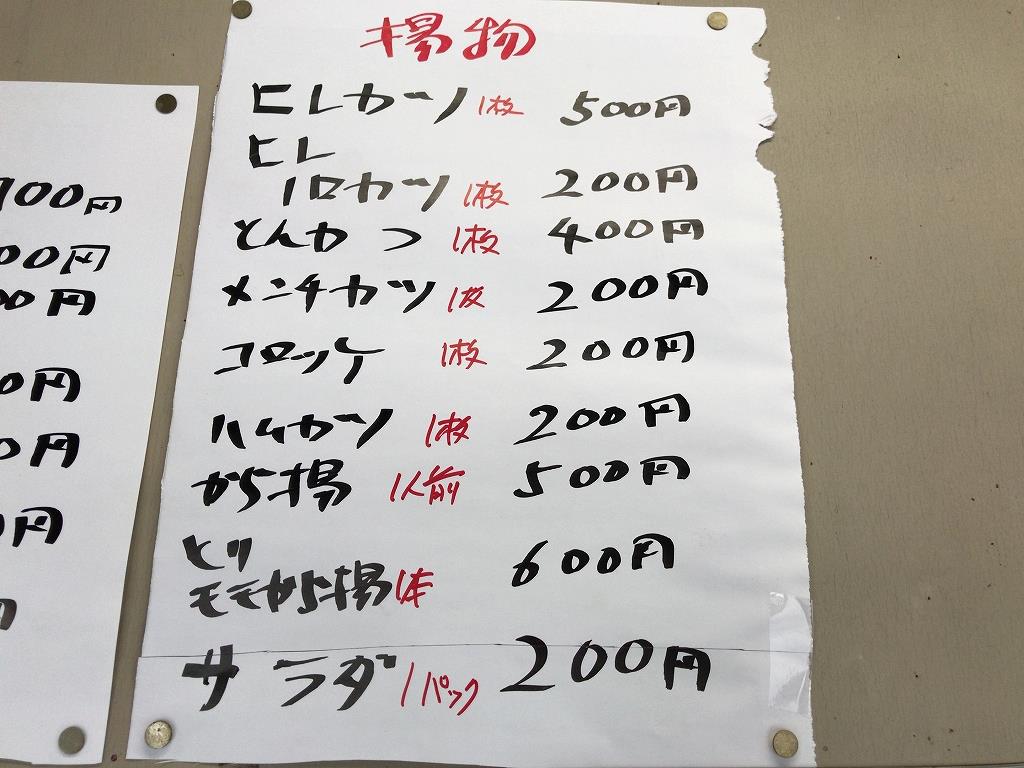 揚物
ヒレカツ 1枚 500円
ヒレ
一口カツ 1枚 200円
とんかつ 1枚 400円
メンチカツ 1枚 200円
コロッケ 1枚 200円
ハムカツ 1枚 200円
から揚 1人前 500円
トリ
モモから揚 1本 600円
サラダ 1パック 200円
00円
00円
00円
0円
0円
0円